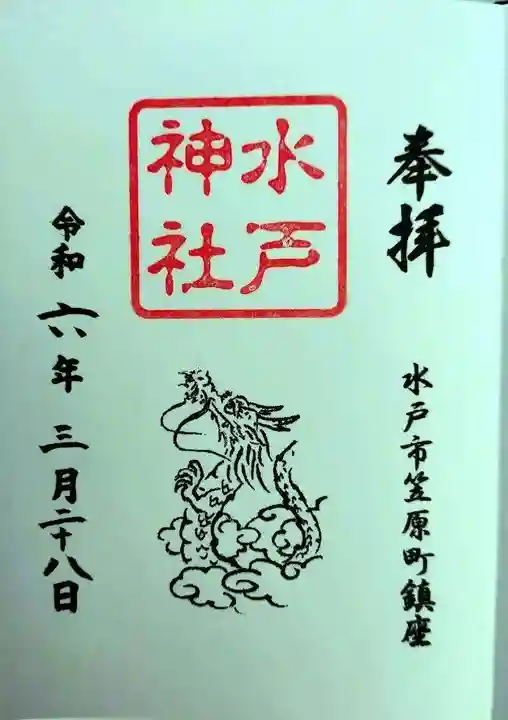 奉拝
水戸市笠原町鎮座
水戸
神社
令和六年三月二十八日